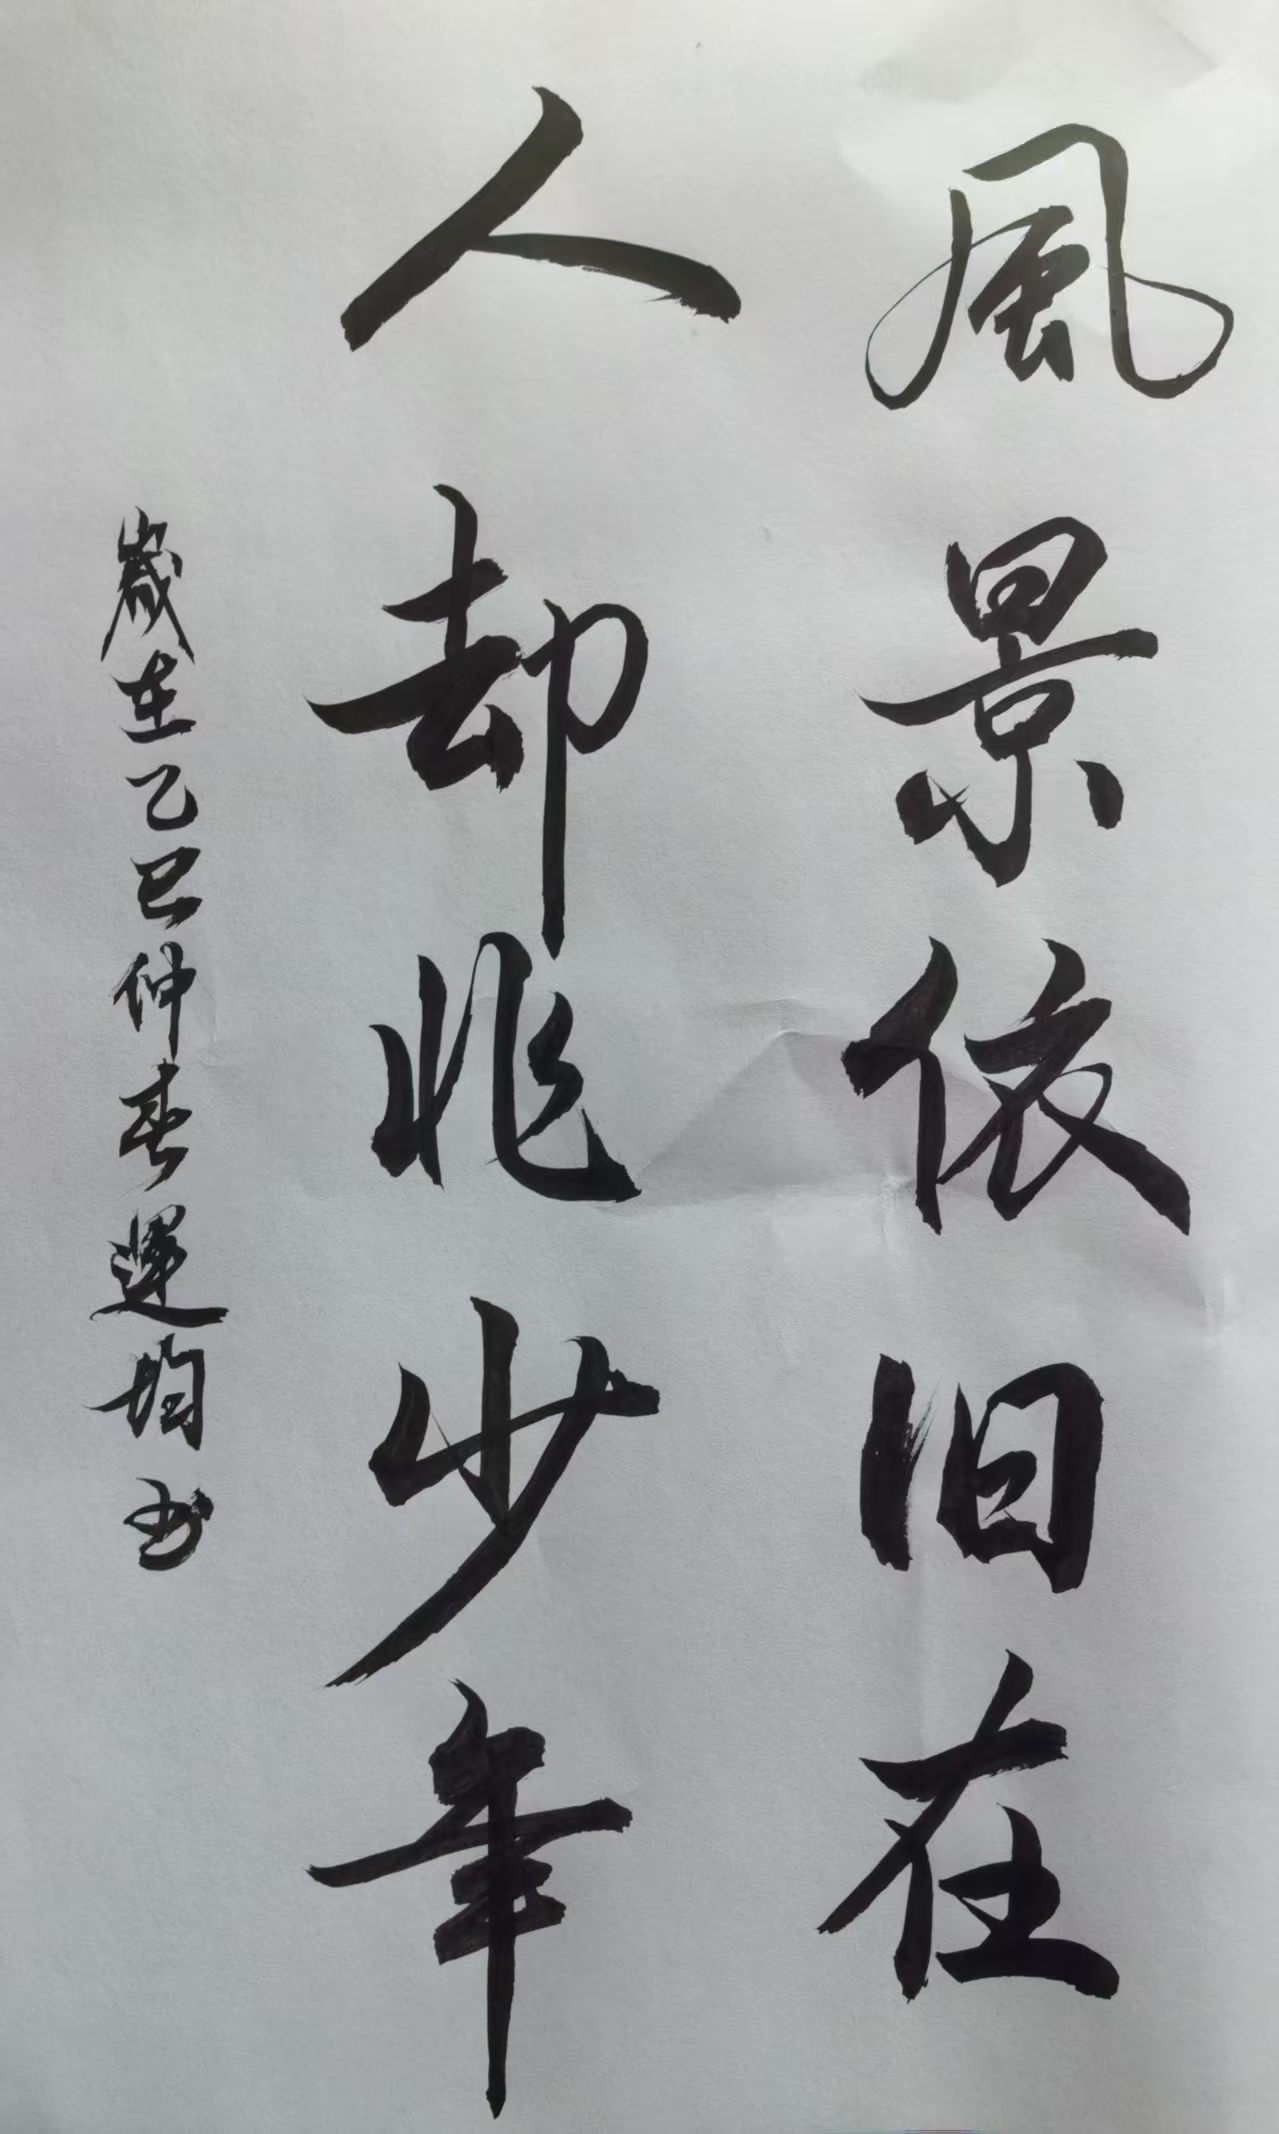 風景依旧在
人却非少年
歲在乙巳仲春運均书